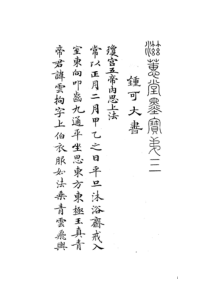 滋蕙堂墨寶弟三
鍾可大書
瓊宮五帝內思上法
常以正月二月甲乙之日平旦沐浴齋戒入
室東向叩齒九通平坐思東方東極玉真青
帝君諱雲拘字上伯衣服如法乘青雲飛輿